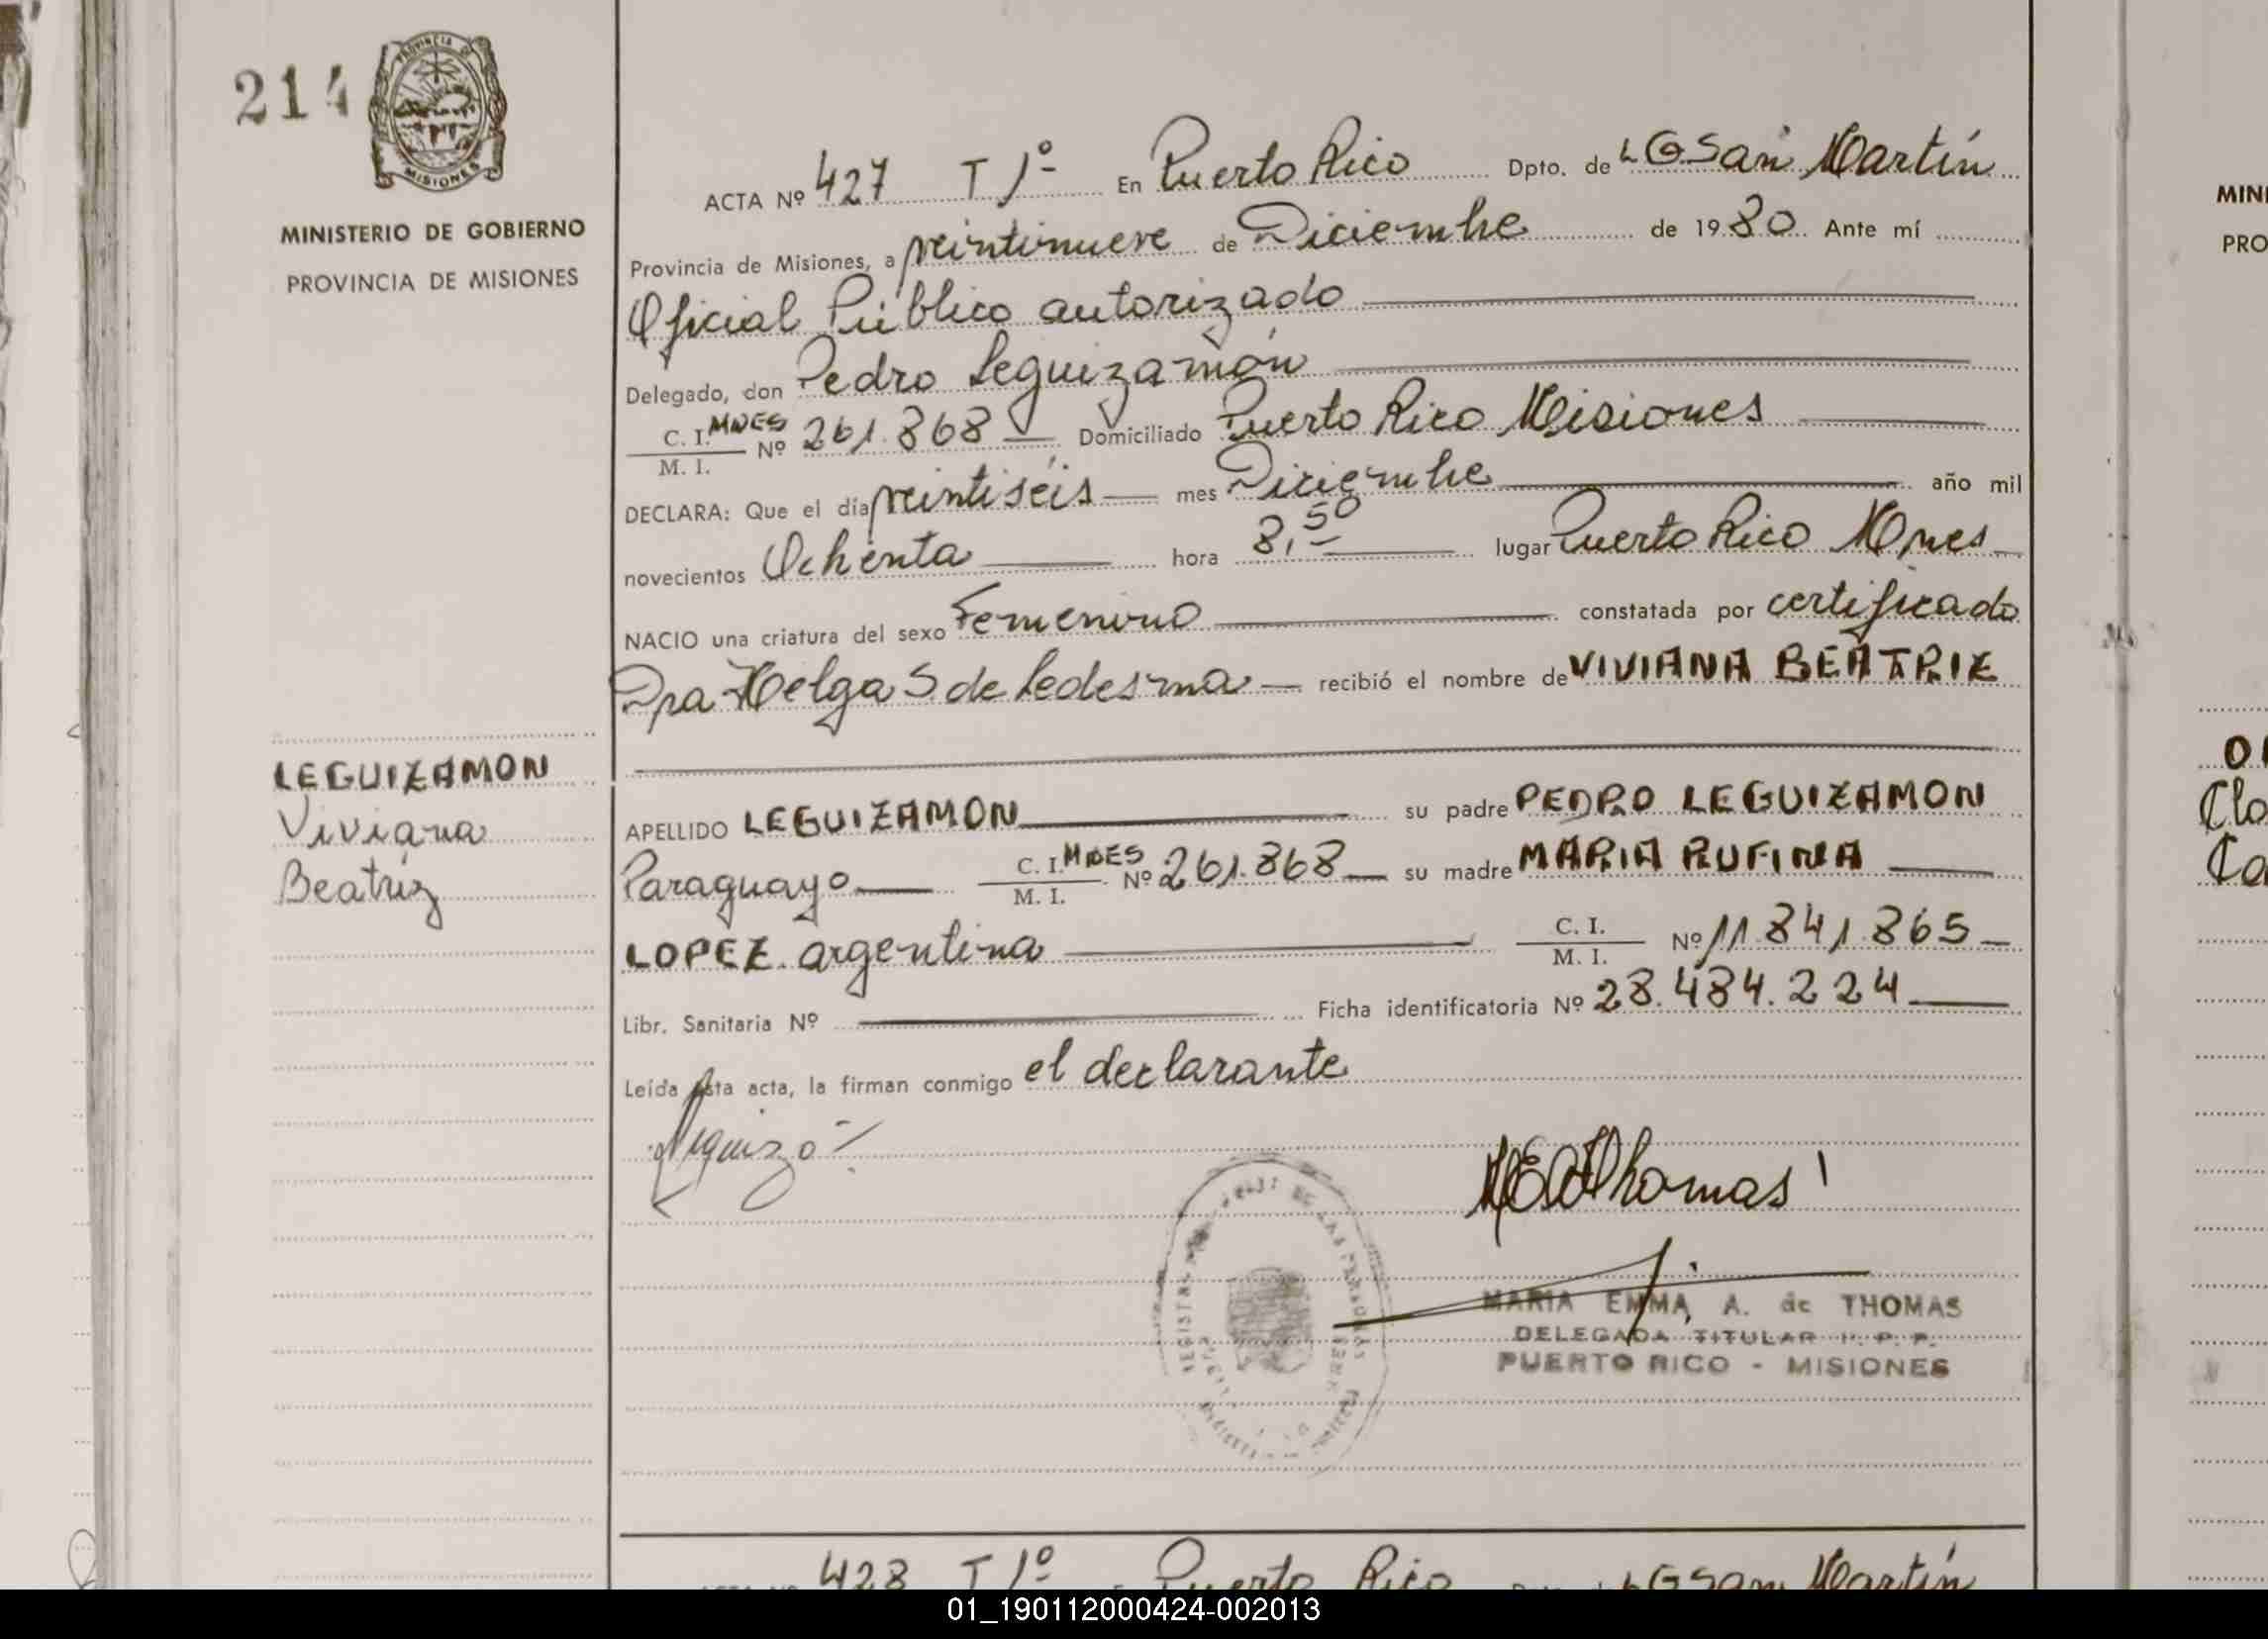 214
PROVINCIA DE
MISIONES
MINISTERIO DE GOBIERNO
PROVINCIA DE MISIONES
LEGUIZAMON
Viviana
Beatriz
ACTA Nº 427 T 1º En Puerto Rico Dpto. de LGSan Martín
Provincia de Misiones, a veintinueve de Diciembre de 1980. Ante mí
Oficial Público autorizado
Delegado, don Pedro Leguizamón
C. I. MNES Nº 261.868 Domiciliado Puerto Rico Misiones
M. I.
DECLARA: Que el día veintiseis mes Diciembre año mil
novecientos Ochenta hora 8,50 lugar Puerto Rico Mnes
NACIO una criatura del sexo Femenino constatada por certificado
Dra Helga S de Ledesma recibió el nombre de VIVIANA BEATRIZ
APELLIDO LEGUIZAMON su padre PEDRO LEGUIZAMON
Paraguayo C. I. MNES Nº 261.868 su madre MARIA RUFINA
M. I.
LOPEZ argentina C. I. Nº 11.841.865
M. I.
Libr. Sanitaria Nº Ficha identificatoria Nº 28.484.224
Leída esta acta, la firman conmigo el declarante
MEAThomas
MARIA EMMA A. de THOMAS
DELEGADA TITULAR
PUERTO RICO - MISIONES
428 T 1º Puerto Rico LGSan Martín
MINI
PRO
Clo
01_190112000424-002013